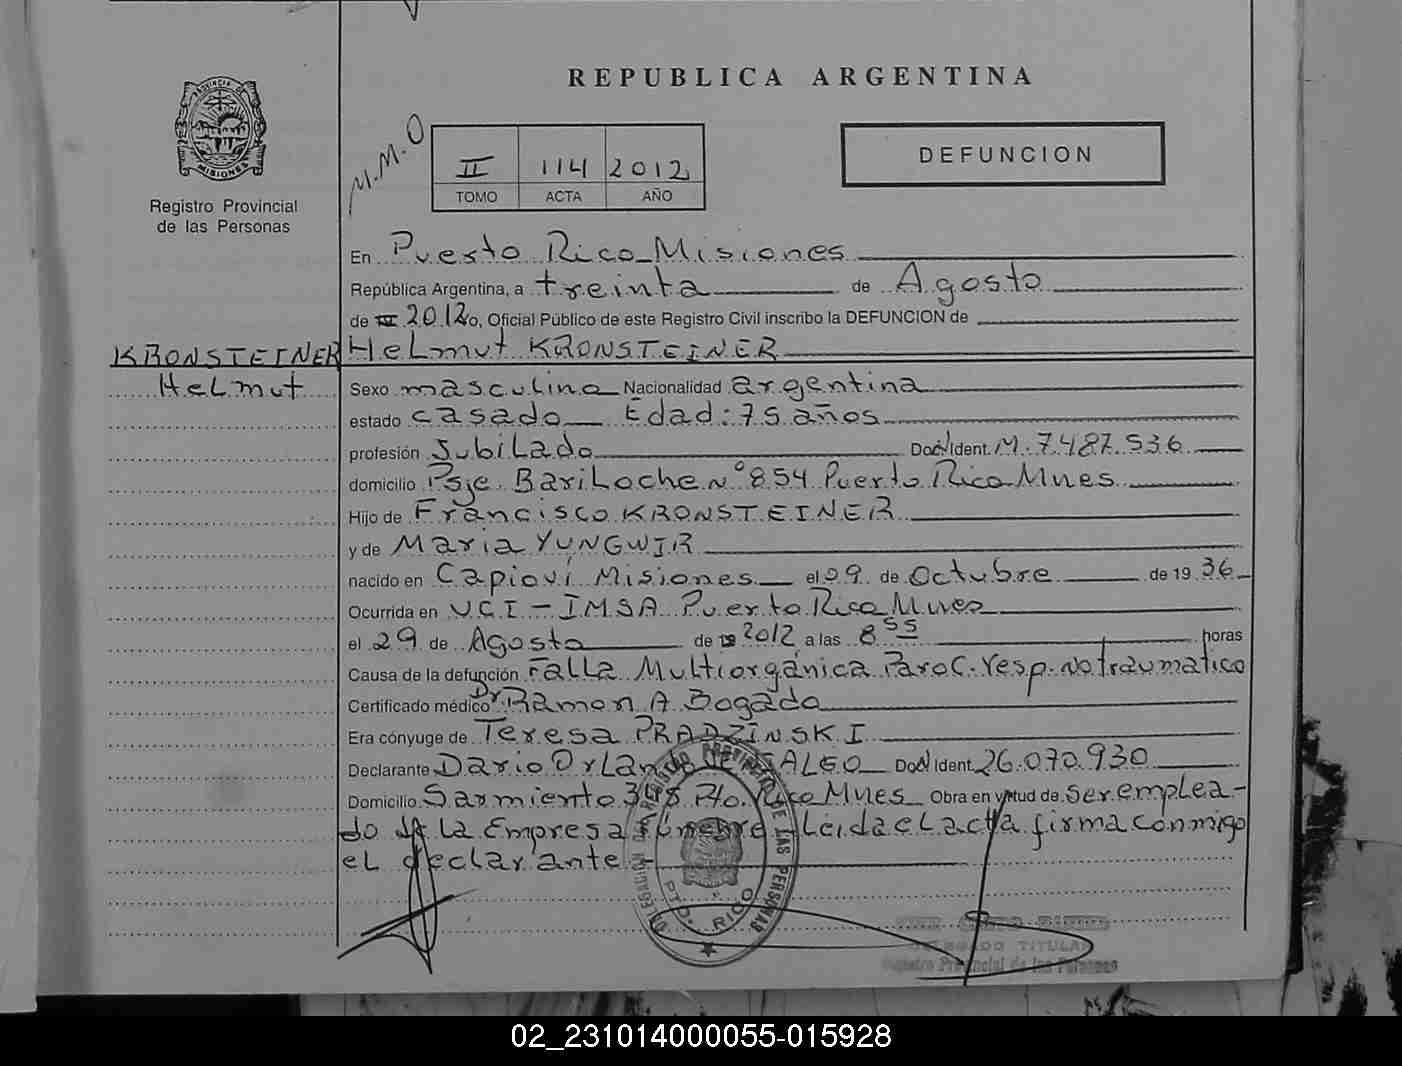 REPUBLICA ARGENTINA
PROVINCIA DE
MISIONES
Registro Provincial
de las Personas
M.M.O
II 114 2012
TOMO ACTA AÑO
DEFUNCION
En Puerto Rico Misiones
República Argentina, a treinta de Agosto
de 2012 yo, Oficial Público de este Registro Civil inscribo la DEFUNCION de
KRONSTEINER Helmut KRONSTEINER
Helmut Sexo masculino Nacionalidad argentina
estado casado Edad: 75 años
profesión Jubilado Doc. Ident. M. 7.487.536
domicilio Psje. Bariloche Nº 854 Puerto Rico Mnes.
Hijo de Francisco KRONSTEINER
y de Maria YUNGWIR
nacido en Capioví Misiones el 29 de Octubre de 1936
Ocurrida en UCI - IMSA Puerto Rico Mnes
el 29 de Agosto de 2012 a las 8 55 horas
Causa de la defunción Falla Multiorgánica Paro C. resp. no traumatico
Certificado médico Dr Ramon A Bogado
Era cónyuge de Teresa PRADZINSKI
Declarante Dario Orlando Doc. Ident. 26.070.930
Domicilio Sarmiento Pto. Rico Mnes Obra en virtud de ser emplea-
do de la Empresa Fúnebre - Leida el acta firma conmigo
el declarante -
DELEGACION DEL REGISTRO PROVINCIAL DE LAS PERSONAS
PTO. RICO
DELEGADO TITULAR
Registro Provincial de las Personas
02_231014000055-015928